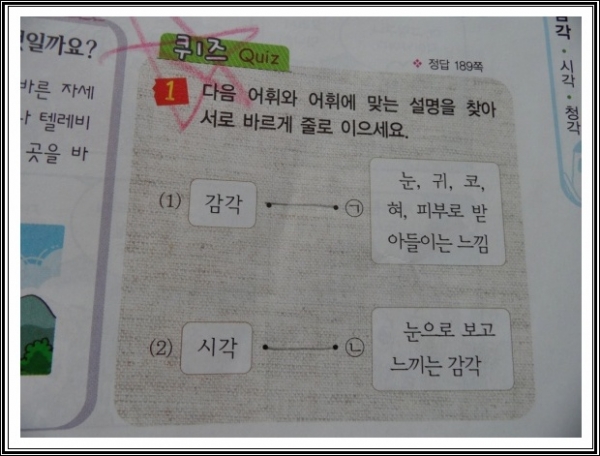 일까요?
바른 자세
텔레비
곳을 바
퀴즈 Quiz
정답 189쪽
1 다음 어휘와 어휘에 맞는 설명을 찾아
서로 바르게 줄로 이으세요.
(1) 감각 ㉠ 눈, 귀, 코,
혀, 피부로 받
아들이는 느낌
(2) 시각 ㉡ 눈으로 보고
느끼는 감각
각·시각·청각